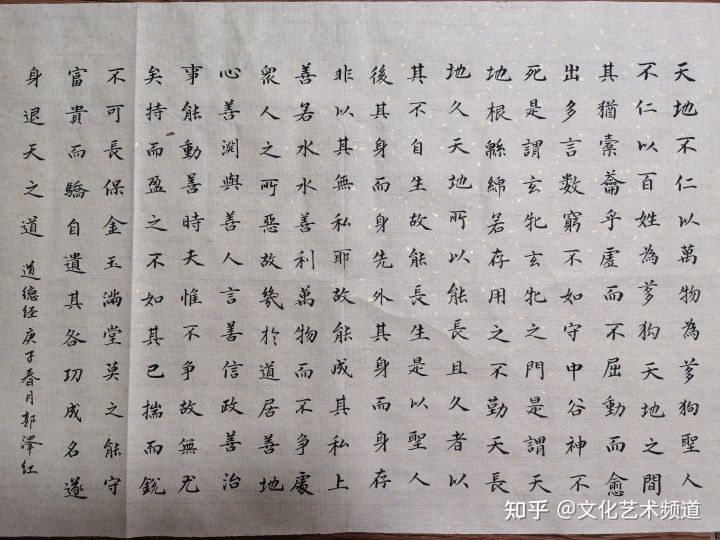 天地不仁以萬物為芻狗聖人
不仁以百姓為芻狗天地之間
其猶橐籥乎虛而不屈動而愈
出多言數窮不如守中谷神不
死是謂玄牝玄牝之門是謂天
地根緜綿若存用之不勤天長
地久天地所以能長且久者以
其不自生故能長生是以聖人
後其身而身先外其身而身存
非以其無私耶故能成其私上
善若水水善利萬物而不争處
衆人之所惡故幾於道居善地
心善渊與善人言善信政善治
事能動善時夫惟不争故無尤
矣持而盈之不如其已揣而銳
不可長保金玉滿堂莫之能守
富貴而驕自遺其咎功成名遂
身退天之道 道德经 庚子春月郭澤红
知乎 @文化艺术频道